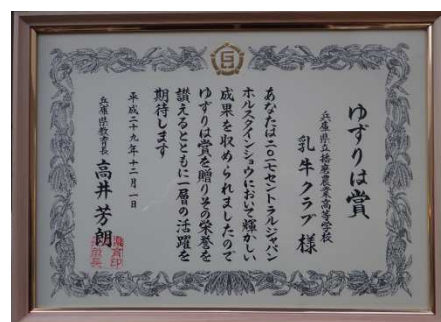 ゆずりは賞
兵庫県立播磨農業高等学校
乳牛クラブ 様
あなたは二〇一七セントラルジャパン
ホルスタインショウにおいて輝かしい
成果を収められましたので
ゆずりは賞を贈りその栄誉を
讃えるとともに一層の活躍を
期待します
平成二十九年十二月一日
兵庫県教育長 高井芳朗